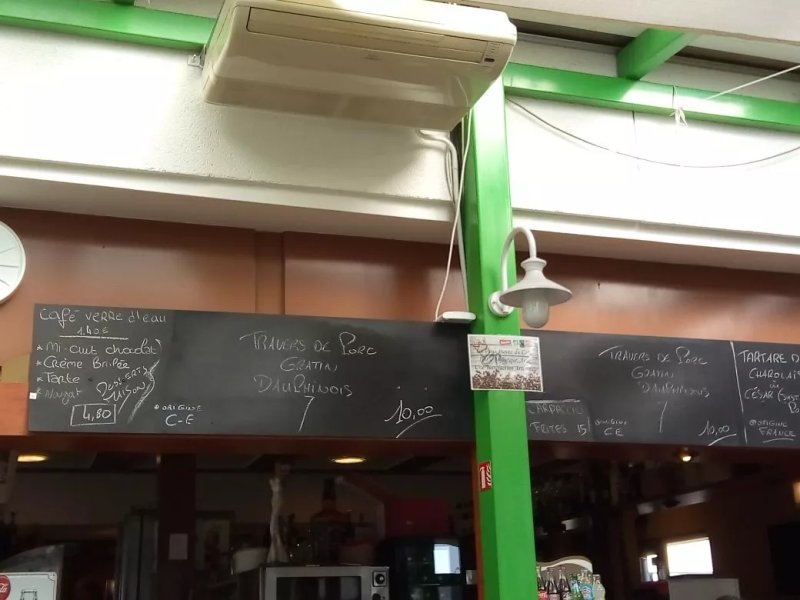 Café verre d'eau
1.40€
* Mi-cuit chocolat
* Crème Brûlée
* Tarte
* Nougat
DESSERTS
MAISON
4,80
* ORIGINE
C-E
TRAVERS DE PORC
GRATIN
DAUPHINOIS
10,00
CARPACCIO
FRITES 15
* ORIGINE
CE
TRAVERS DE PORC
GRATIN
DAUPHINOIS
10,00
TARTARE D
CHAROLAIS
ou
CÉSAR
* ORIGINE
FRANCE